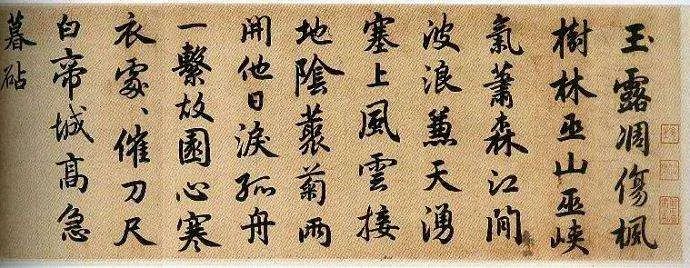 玉露凋傷楓
樹林巫山巫峽
氣蕭森江間
波浪兼天湧
塞上風雲接
地陰藂菊兩
開他日淚孤舟
一繫故園心寒
衣處〻催刀尺
白帝城高急
暮砧